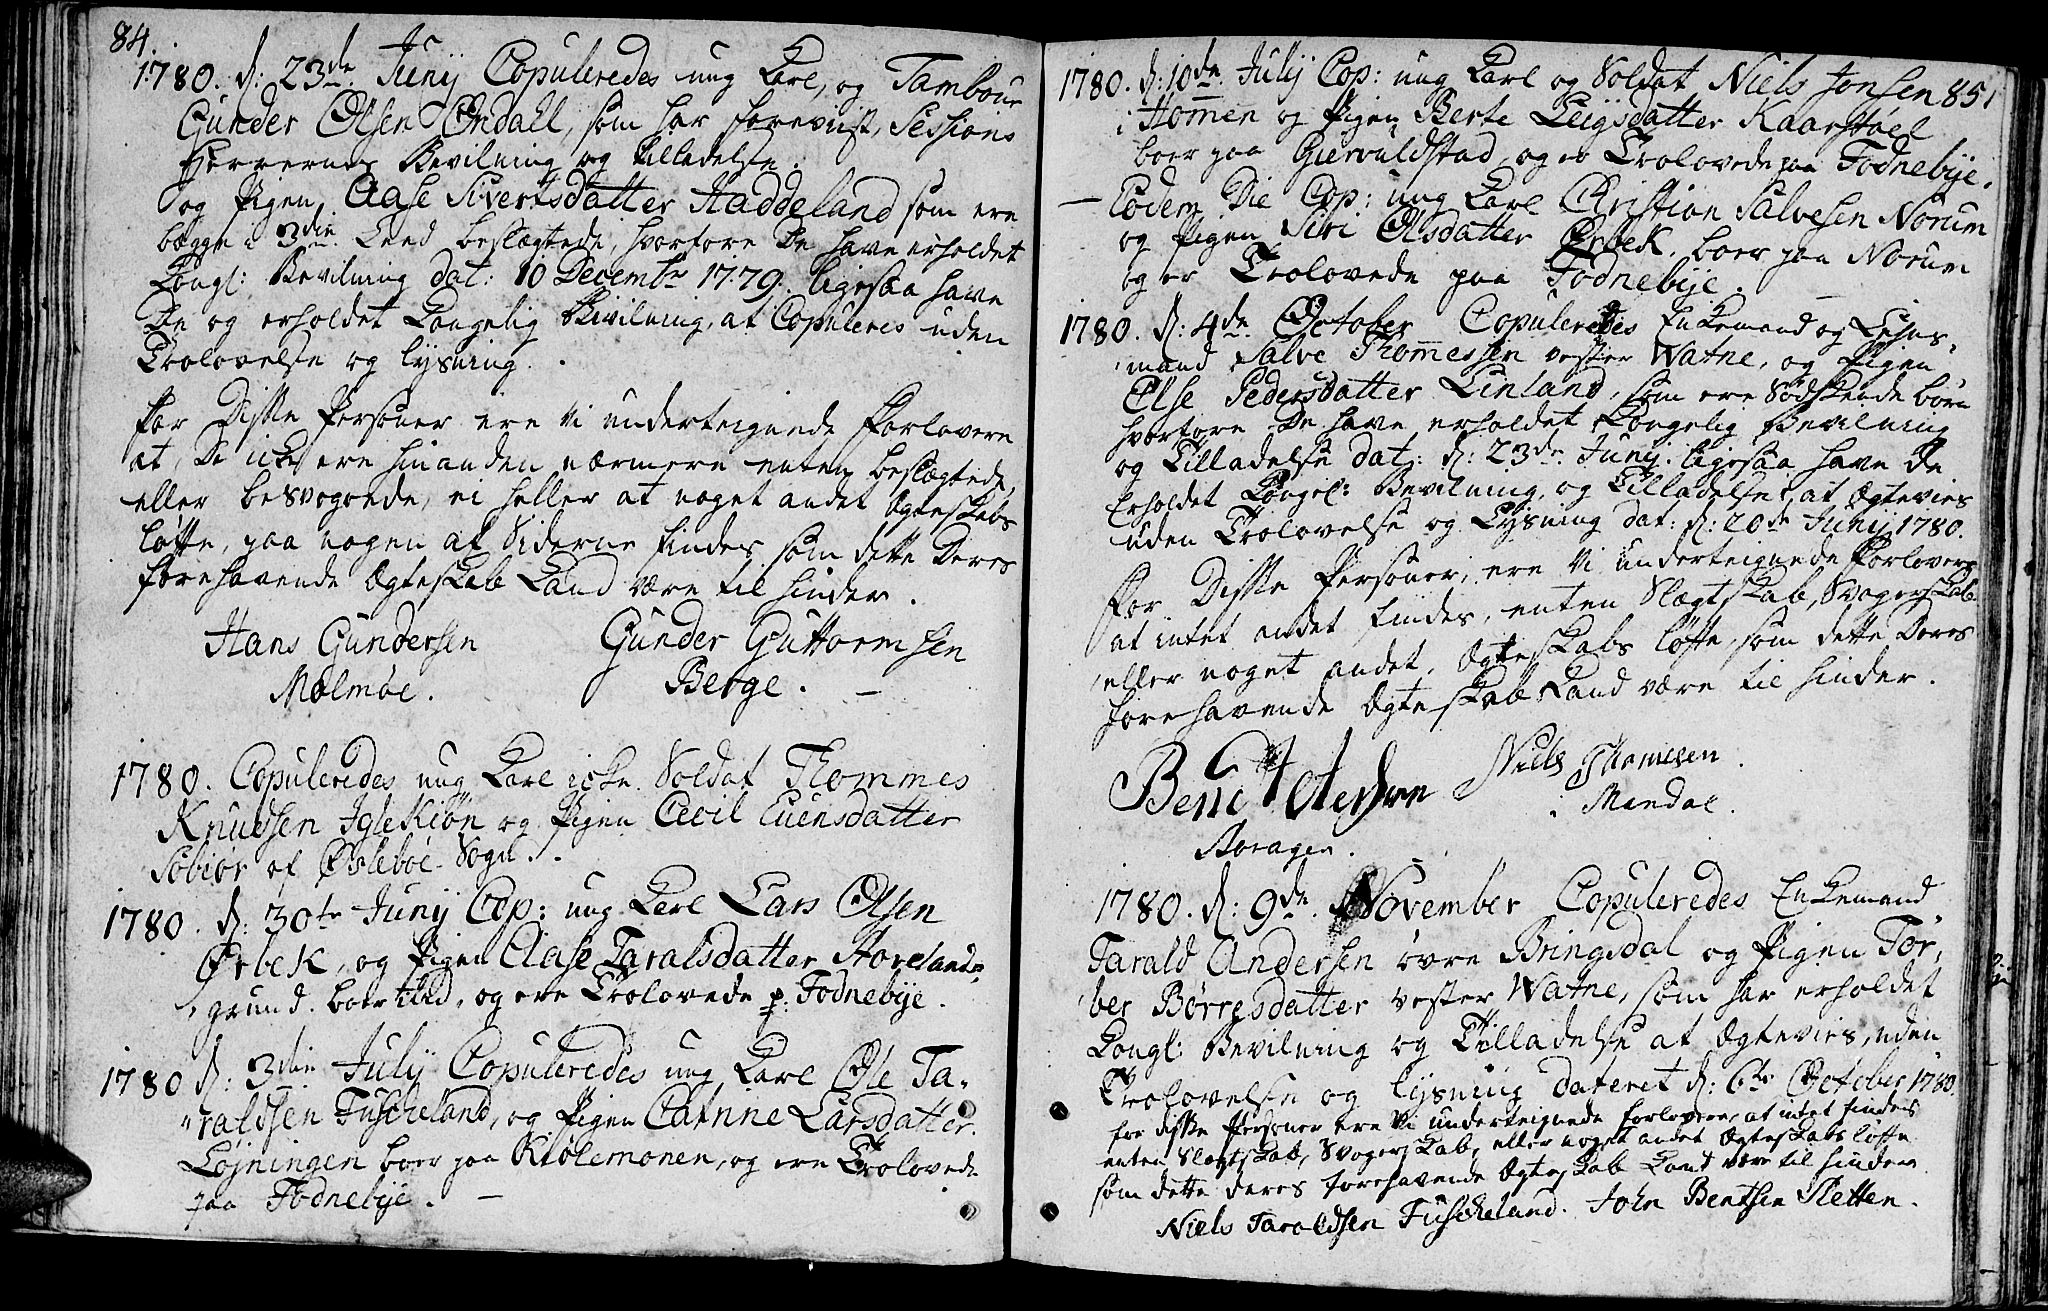 84.
1780. d: 23de Junij Copuleredes ung Karl, og Tambour
Gunder Olsen Ondall, som har foreviist, Sessions
Herrernes Bevilning og Tilladelse.
og Pigen Aase Sivertsdatter Haddeland som ere
begge i 3die Leed beslægtede, hvorfore De have erholdet
Kongl: Bevilning dat: 10 Decembr 1779. ligesaa have
De og erholdet Kongelig Bevilning, at Copuleres uden
Trolovelse og lysning.
For Disse Personer ere Vi underteignede Forlovere
at, De icke ere hinanden nærmere enten beslægtede,
eller besvogrede, ei heller at noget andet Ægteskabs
løfte, paa nogen af Siderne findes som dette Deres
forehavende Ægteskab Kand være til hinder.
Hans Gundersen Gunder Guttormsen
Malmøe. Berge. —
1780. Copuleredes ung Karl icke Soldat Thommes
Knudsen Iglekiøn og Pigen Cecil Evensdatter
af Øslebøe Sogn.
1780. d: 30te Junij Cop: ung Karl Lars Olsen
Ørbek, og Pigen Aase Taralsdatter Hoveland-
grund. boer ibid, og ere Trolovede p. Fodnebÿe.
1780 d: 3die Julij Copuleredes ung Karl Ole Ta-
raldsen Fuskeland, og Pigen Catrine Larsdatter
Løjningen boer paa Kiølemonen, og ere Trolovede
paa Fodnebÿe. —
1780. d: 10de Julij Cop: ung Karl og Soldat Niels Jonsen 85.
i Homen og Pigen Berte Leigsdatter Kaarstøel
boer paa Giervuldstad, og er Trolovede paa Fodnebÿe.
— Eodem Die Cop: ung Karl Christian Salvesen Norum
og Pigen Siri Olsdatter Ørbek. boer paa Norum
og er Trolovede paa Fodnebÿe.
1780. d: 4de October Copuleredes Enkemand og Lehns-
mand Salve Thommesen vester Watne, og Pigen
Else Pedersdatter Linland, som ere Sødskende børn
hvorfore De have erholdet Kongelig Bevilning
og Tilladelse dat: d: 23de Junij. ligesaa have De
Erholdet Kongel: Bevilning, og Tilladelse, at Ægtevies
uden Trolovelse og Lysning dat: d: 20de Junij 1780.
For Disse Personer, ere Vi underteignede Forlovere
at intet andet findes, enten Slægtskab, Svogerskab
eller noget andet, Ægteskabs løfte, som dette Deres
forehavende Ægteskab Kand være til hinder.
Bent Niels Thomesen
i Mandal.
1780. d: 9de November Copuleredes Enkemand
Tarald Andersen øvre Bringsdal og Pigen Tor-
ber Børresdatter vester Watne, som har erholdet
Kongl: Bevilning og Tilladelse at Ægtevies, uden
Trolovelse og lysning dateret d: 6te October 1780.
for disse Personer ere Vi underteignede forlovere, at intet findes
enten Slægtskab, Svogerskab, eller noget andet Ægteskabs løfte
som dette deres forehavende Ægteskab Kand være til hinder
Niels Taraldsen Fuskeland. John Bentsen Sletten.